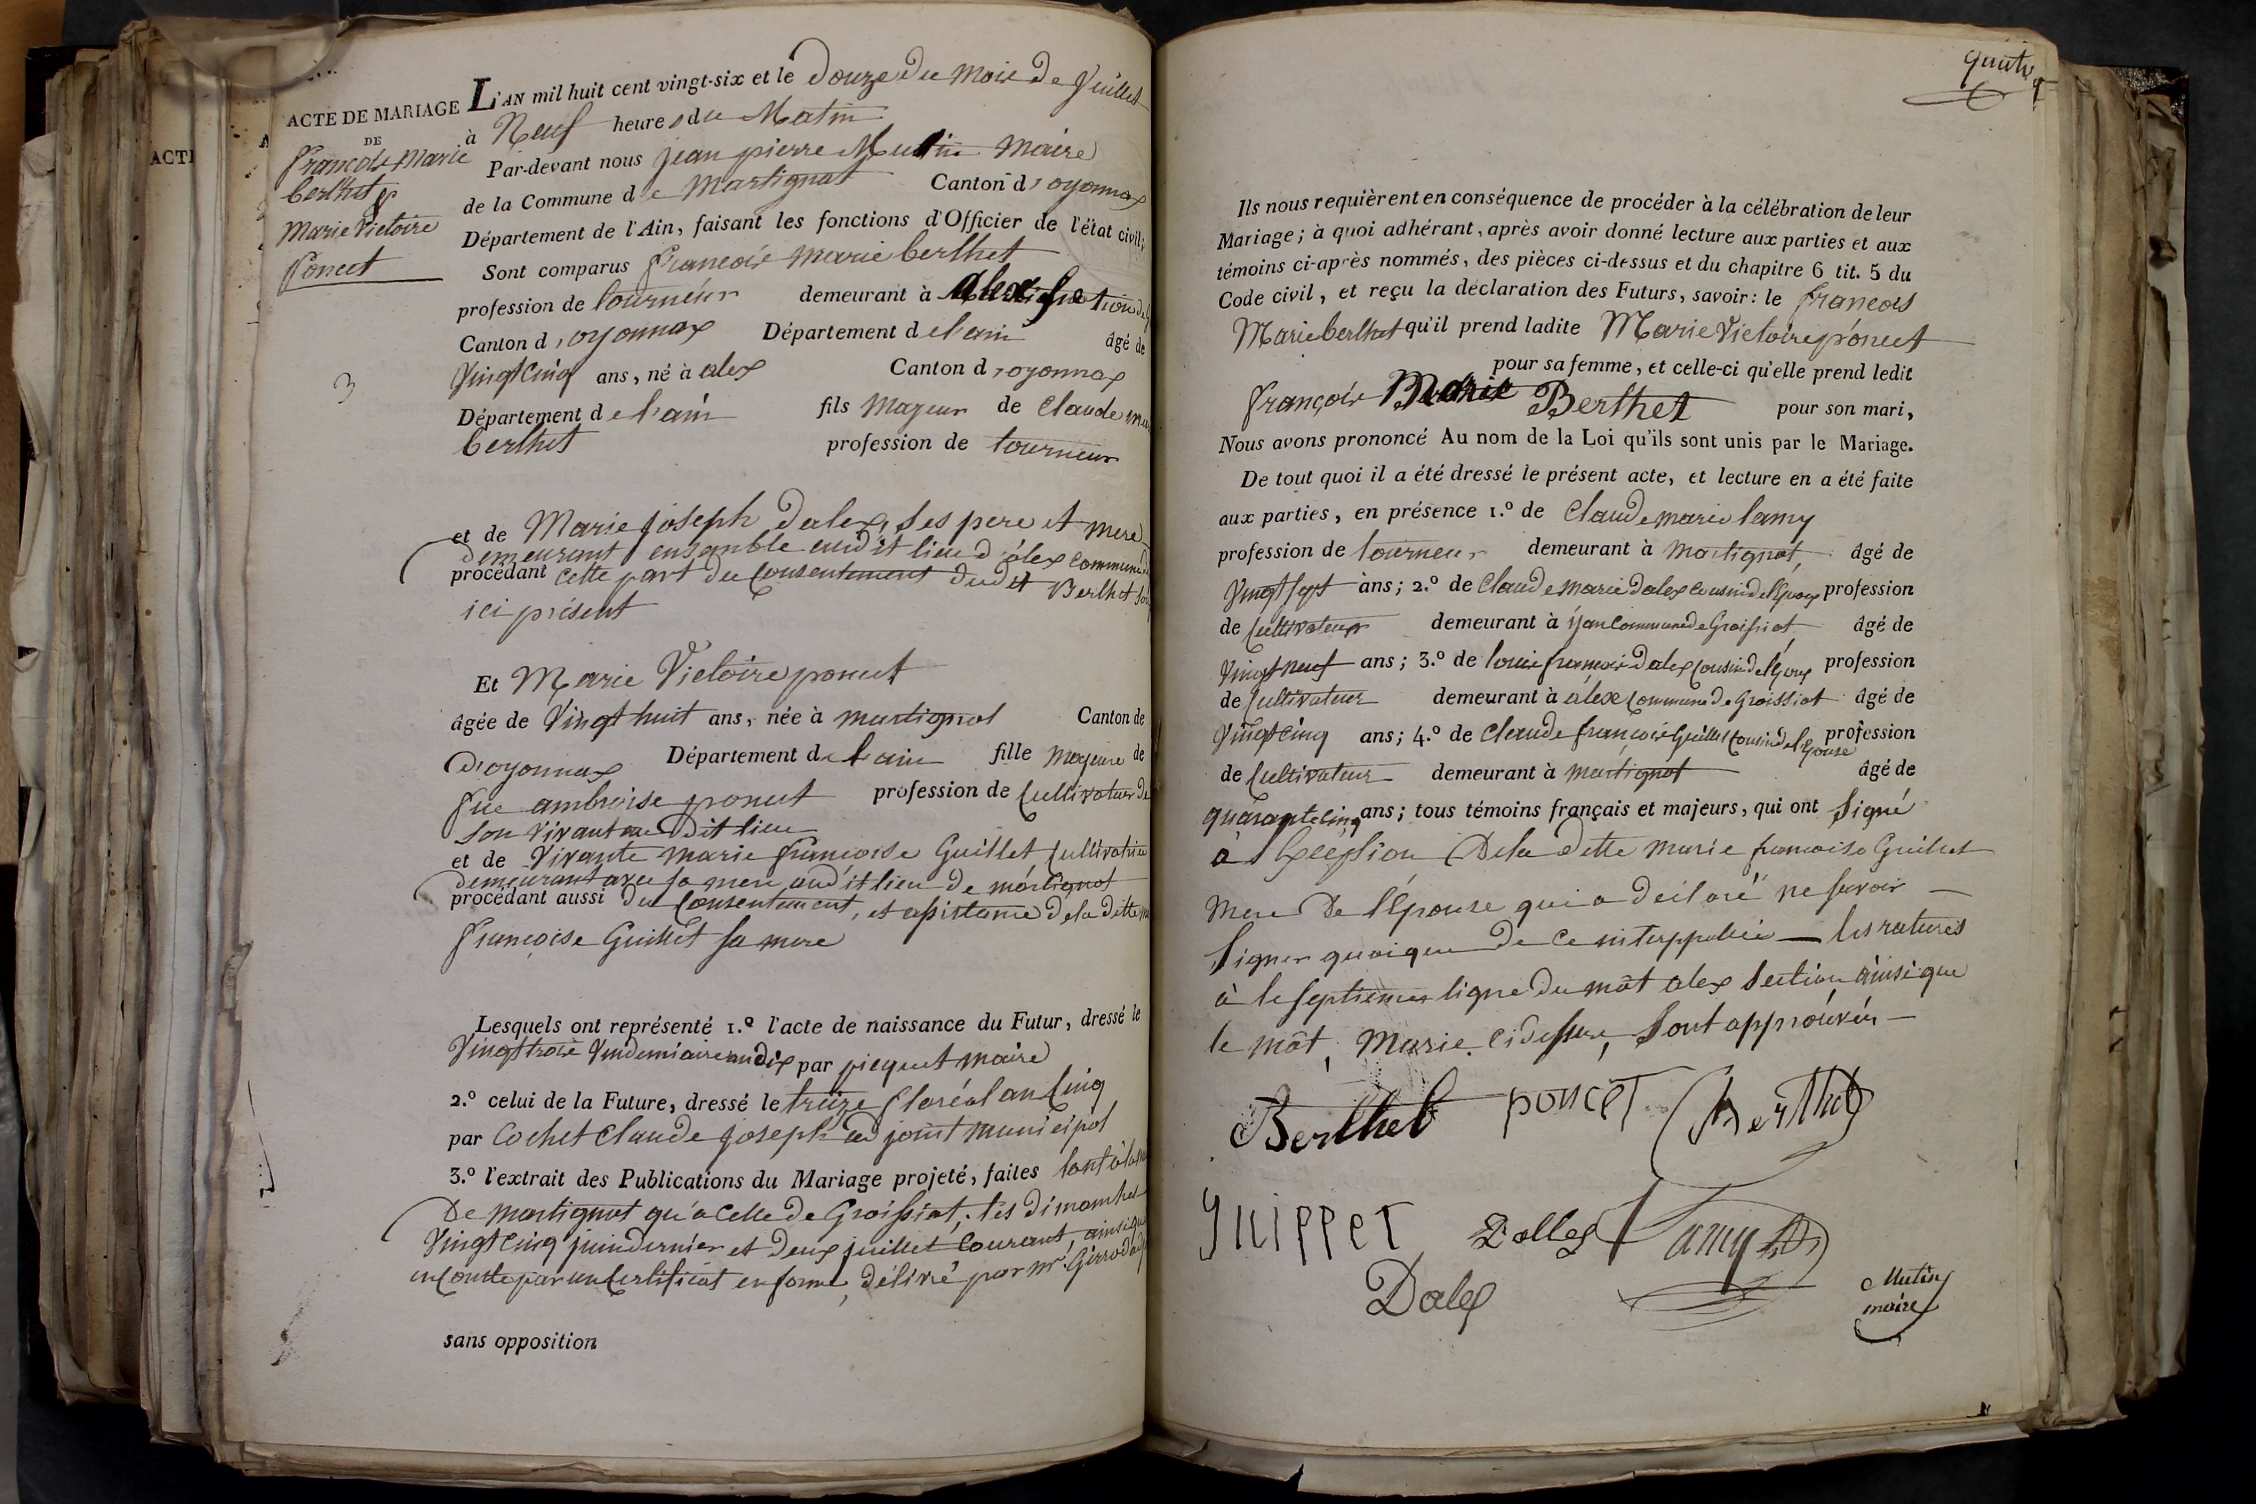 ACTE DE MARIAGE
DE
françois Marie
berthet &
Marie Victoire
Poncet
3
ACTE
L'AN mil huit cent vingt-six et le Douze du Mois de Juillet
à Neuf heures du Matin
Par-devant nous jean pierre Mutin Maire
de la Commune de Martignat Canton d'oyonnax
Département de l'Ain, faisant les fonctions d'Officier de l'état civil;
Sont comparus françois marie berthet
profession de tourneur demeurant à alex
Canton d'oyonnax Département de l'ain âgé de
Vingt Cinq ans, né à alex Canton d'oyonnax
Département de l'ain fils Majeur de Claude
berthet profession de tourneur
et de Marie joseph Dalex, ses pere et mere
demeurant ensemble audit lieu d'alex commune
procédant cette part du Consentement dudit Berthet
ici présent
Et Marie Victoire poncet
âgée de Vingt huit ans, née à martignat Canton de
D'oyonnax Département de l'ain fille Majeure de
fue ambroise poncet profession de Cultivateur de
son Vivant au Dit lieu
et de Vivante marie françoise Guillet Cultivatrice
demeurant avec sa mere audit lieu de martignat
procédant aussi du Consentement, et assistance de la ditte
françoise Guillet sa mere
Lesquels ont représenté 1.º l'acte de naissance du Futur, dressé le
Vingt trois Vendemiaire an dix par picquet maire
2.º celui de la Future, dressé le treize floréal an Cinq
par Cochet Claude joseph adjoint municipal
3.º l'extrait des Publications du Mariage projeté, faites tant à
De martignat qu'a Celle de Groissiat, les dimanches
Vingt Cinq juin dernier et deux juillet Courant, ainsi
en Conste par un Certificat en forme, délivré par mr
sans opposition
Ils nous requièrent en conséquence de procéder à la célébration de leur
Mariage; à quoi adhérant, après avoir donné lecture aux parties et aux
témoins ci-après nommés, des pièces ci-dessus et du chapitre 6 tit. 5 du
Code civil, et reçu la déclaration des Futurs, savoir: le françois
Marie berthet qu'il prend ladite Marie Victoire poncet
pour sa femme, et celle-ci qu'elle prend ledit
françois Marie Berthet pour son mari,
Nous avons prononcé Au nom de la Loi qu'ils sont unis par le Mariage.
De tout quoi il a été dressé le présent acte, et lecture en a été faite
aux parties, en présence 1.º de Claude marie lamy
profession de tourneur demeurant à martignat, âgé de
Vingt sept ans; 2.º de Claude marie Dalex cousin de l'Epoux profession
de Cultivateur demeurant à Commune de Groissiat, âgé de
Vingt neuf ans; 3.º de louis françois Dalex Cousin de l'Epoux profession
de Cultivateur demeurant à alex Commune de Groissiat âgé de
Vingt Cinq ans; 4.º de Claude françois Guillet Cousin de l'Epouse profession
de Cultivateur demeurant à martignat âgé de
quarante cinq ans; tous témoins français et majeurs, qui ont signé
à l'Exception De la ditte marie françoise Guillet
mere De l'Epouse qui a déclaré ne savoir
signer quoique de ce interppellée — les ratures
à la septieme ligne du mot alex section ainsi que
le môt, Marie, cidessus, sont approuvés —
Berthet poncet Berthet
guippet Dallex Lamy
Dalex Mutin
maire